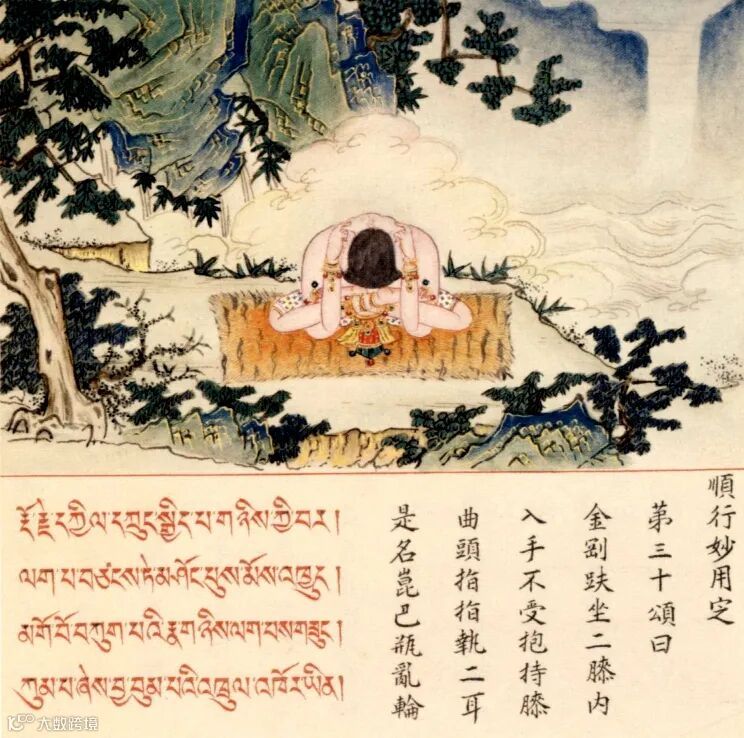 རྡོ་རྗེ་དཀྱིལ་དཀྲུང་སྒྱིད་པ་གཉིས་ཀྱི་བར།
ལག་པ་བཙངས་ཏེ་མ་ཤོང་པུས་མོས་འཁྱུད།
མགོ་བོ་བཀུག་པའི་རྣ་གཉིས་ལག་པས་གཟུང།
ཀུམ་པ་ཞེས་བྱ་བུམ་པའི་འཁྲུལ་འཁོར་ཡིན།
順行妙用定
第三十頌曰
金剛趺坐二膝內
入手不受抱持膝
曲頭指指執二耳
是名崑巴瓶亂輪
大数跨境